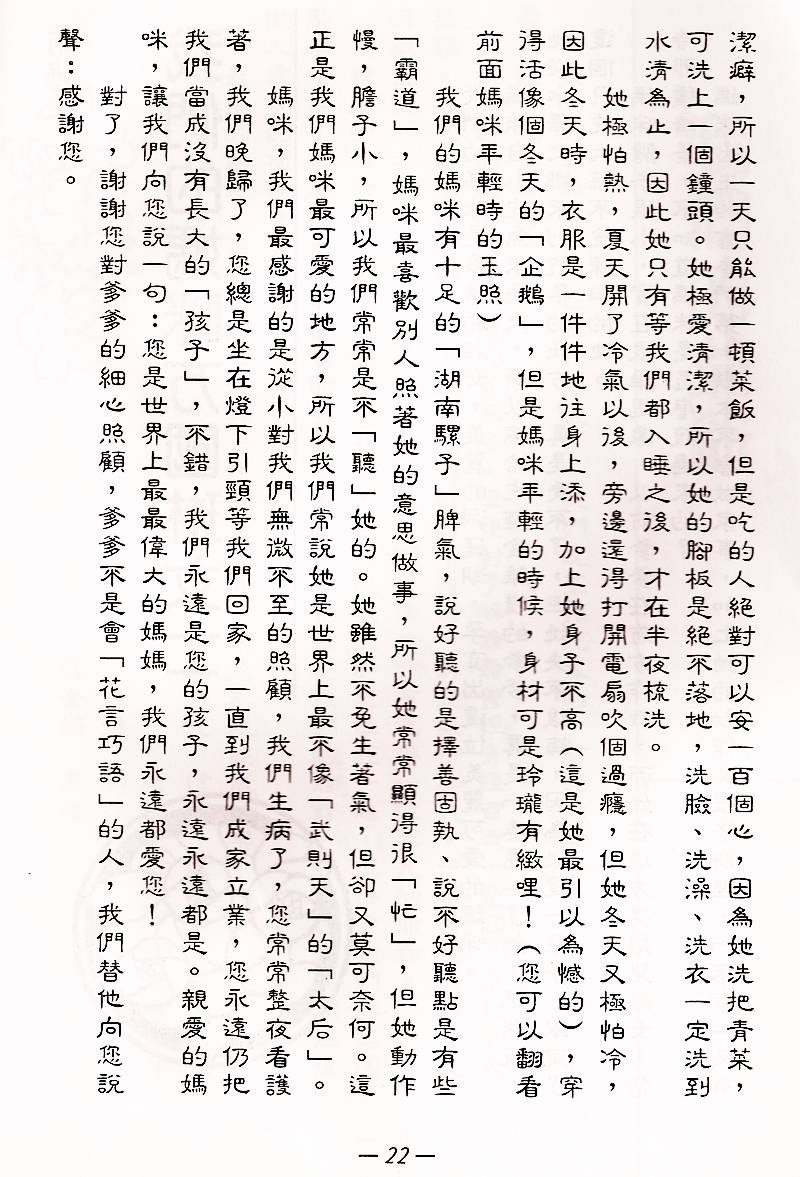 潔癖，所以一天只能做一頓菜飯，但是吃的人絕對可以安一百個心，因為她洗把青菜，
可洗上一個鐘頭。她極愛清潔，所以她的腳板是絕不落地，洗臉、洗澡、洗衣一定洗到
水清為止，因此她只有等我們都入睡之後，才在半夜梳洗。
她極怕熱，夏天開了冷氣以後，旁邊還得打開電扇吹個過癮，但她冬天又極怕冷，
因此冬天時，衣服是一件件地往身上添，加上她身子不高（這是她最引以為憾的），穿
得活像個冬天的「企鵝」，但是媽咪年輕的時候，身材可是玲瓏有緻哩！（您可以翻看
前面媽咪年輕時的玉照）
我們的媽咪有十足的「湖南騾子」脾氣，說好聽的是擇善固執、說不好聽點是有些
「霸道」，媽咪最喜歡別人照著她的意思做事，所以她常常顯得很「忙」，但她動作
慢，膽子小，所以我們常常是不「聽」她的。她雖然不免生著氣，但卻又莫可奈何。這
正是我們媽咪最可愛的地方，所以我們常說她是世界上最不像「武則天」的「太后」。
媽咪，我們最感謝的是從小對我們無微不至的照顧，我們生病了，您常常整夜看護
著，我們晚歸了，您總是坐在燈下引頸等我們回家，一直到我們成家立業，您永遠仍把
我們當成沒有長大的「孩子」，不錯，我們永遠是您的孩子，永遠永遠都是。親愛的媽
咪，讓我們向您說一句：您是世界上最最偉大的媽媽，我們永遠都愛您！
對了，謝謝您對爹爹的細心照顧，爹爹不是會「花言巧語」的人，我們替他向您說
聲：感謝您。
— 22 —